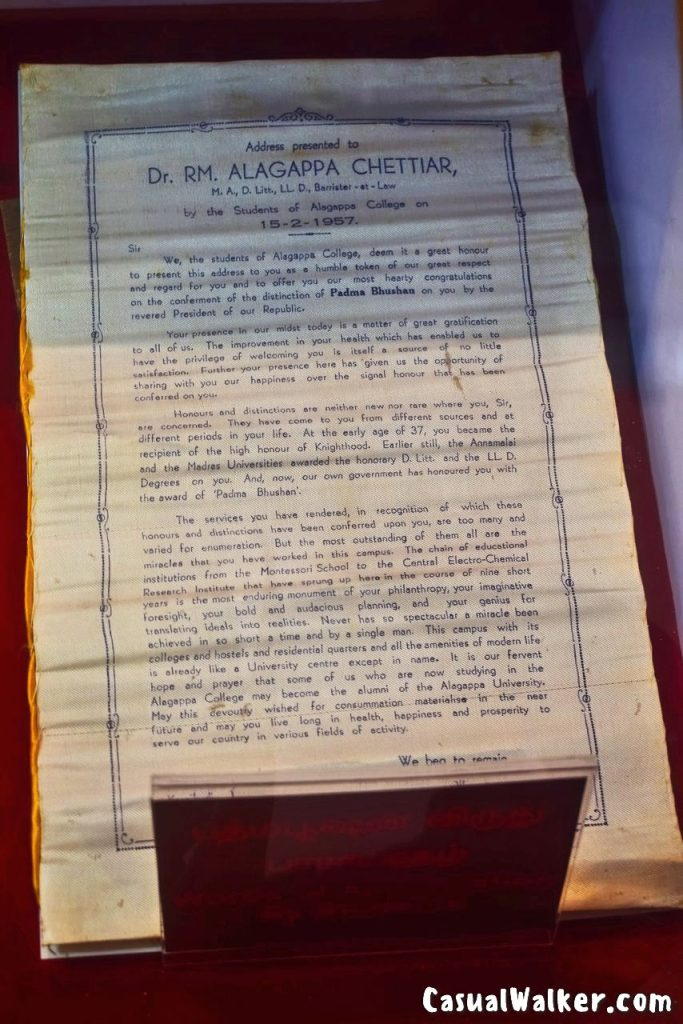 Address presented to
Dr. RM. ALAGAPPA CHETTIAR,
M. A., D. Litt., LL. D., Barrister-at-Law
by the Students of Alagappa College on
15-2-1957.
Sir
We, the students of Alagappa College, deem it a great honour
to present this address to you as a humble token of our great respect
and regard for you and to offer you our most hearty congratulations
on the conferment of the distinction of Padma Bhushan on you by the
revered President of our Republic.
Your presence in our midst today is a matter of great gratification
to all of us. The improvement in your health which has enabled us to
have the privilege of welcoming you is itself a source of no little
satisfaction. Further your presence here has given us the opportunity of
sharing with you our happiness over the signal honour that has been
conferred on you.
Honours and distinctions are neither new nor rare where you, Sir,
are concerned. They have come to you from different sources and at
different periods in your life. At the early age of 37, you became the
recipient of the high honour of Knighthood. Earlier still, the Annamalai
and the Madras Universities awarded the honorary D. Litt. and the LL. D.
Degrees on you. And, now, our own government has honoured you with
the award of 'Padma Bhushan'.
The services you have rendered, in recognition of which these
honours and distinctions have been conferred upon you, are too many and
varied for enumeration. But the most outstanding of them all are the
miracles that you have worked in this campus. The chain of educational
institutions from the Montessori School to the Central Electro-Chemical
Research Institute that have sprung up here in the course of nine short
years is the most enduring monument of your philanthropy, your imaginative
foresight, your bold and audacious planning, and your genius for
translating ideals into realities. Never has so spectacular a miracle been
achieved in so short a time and by a single man. This campus with its
colleges and hostels and residential quarters and all the amenities of modern life
is already like a University centre except in name. It is our fervent
hope and prayer that some of us who are now studying in the
Alagappa College may become the alumni of the Alagappa University.
May this devoutly wished for consummation materialise in the near
future and may you live long in health, happiness and prosperity to
serve our country in various fields of activity.
We beg to remain
CasualWalker.com